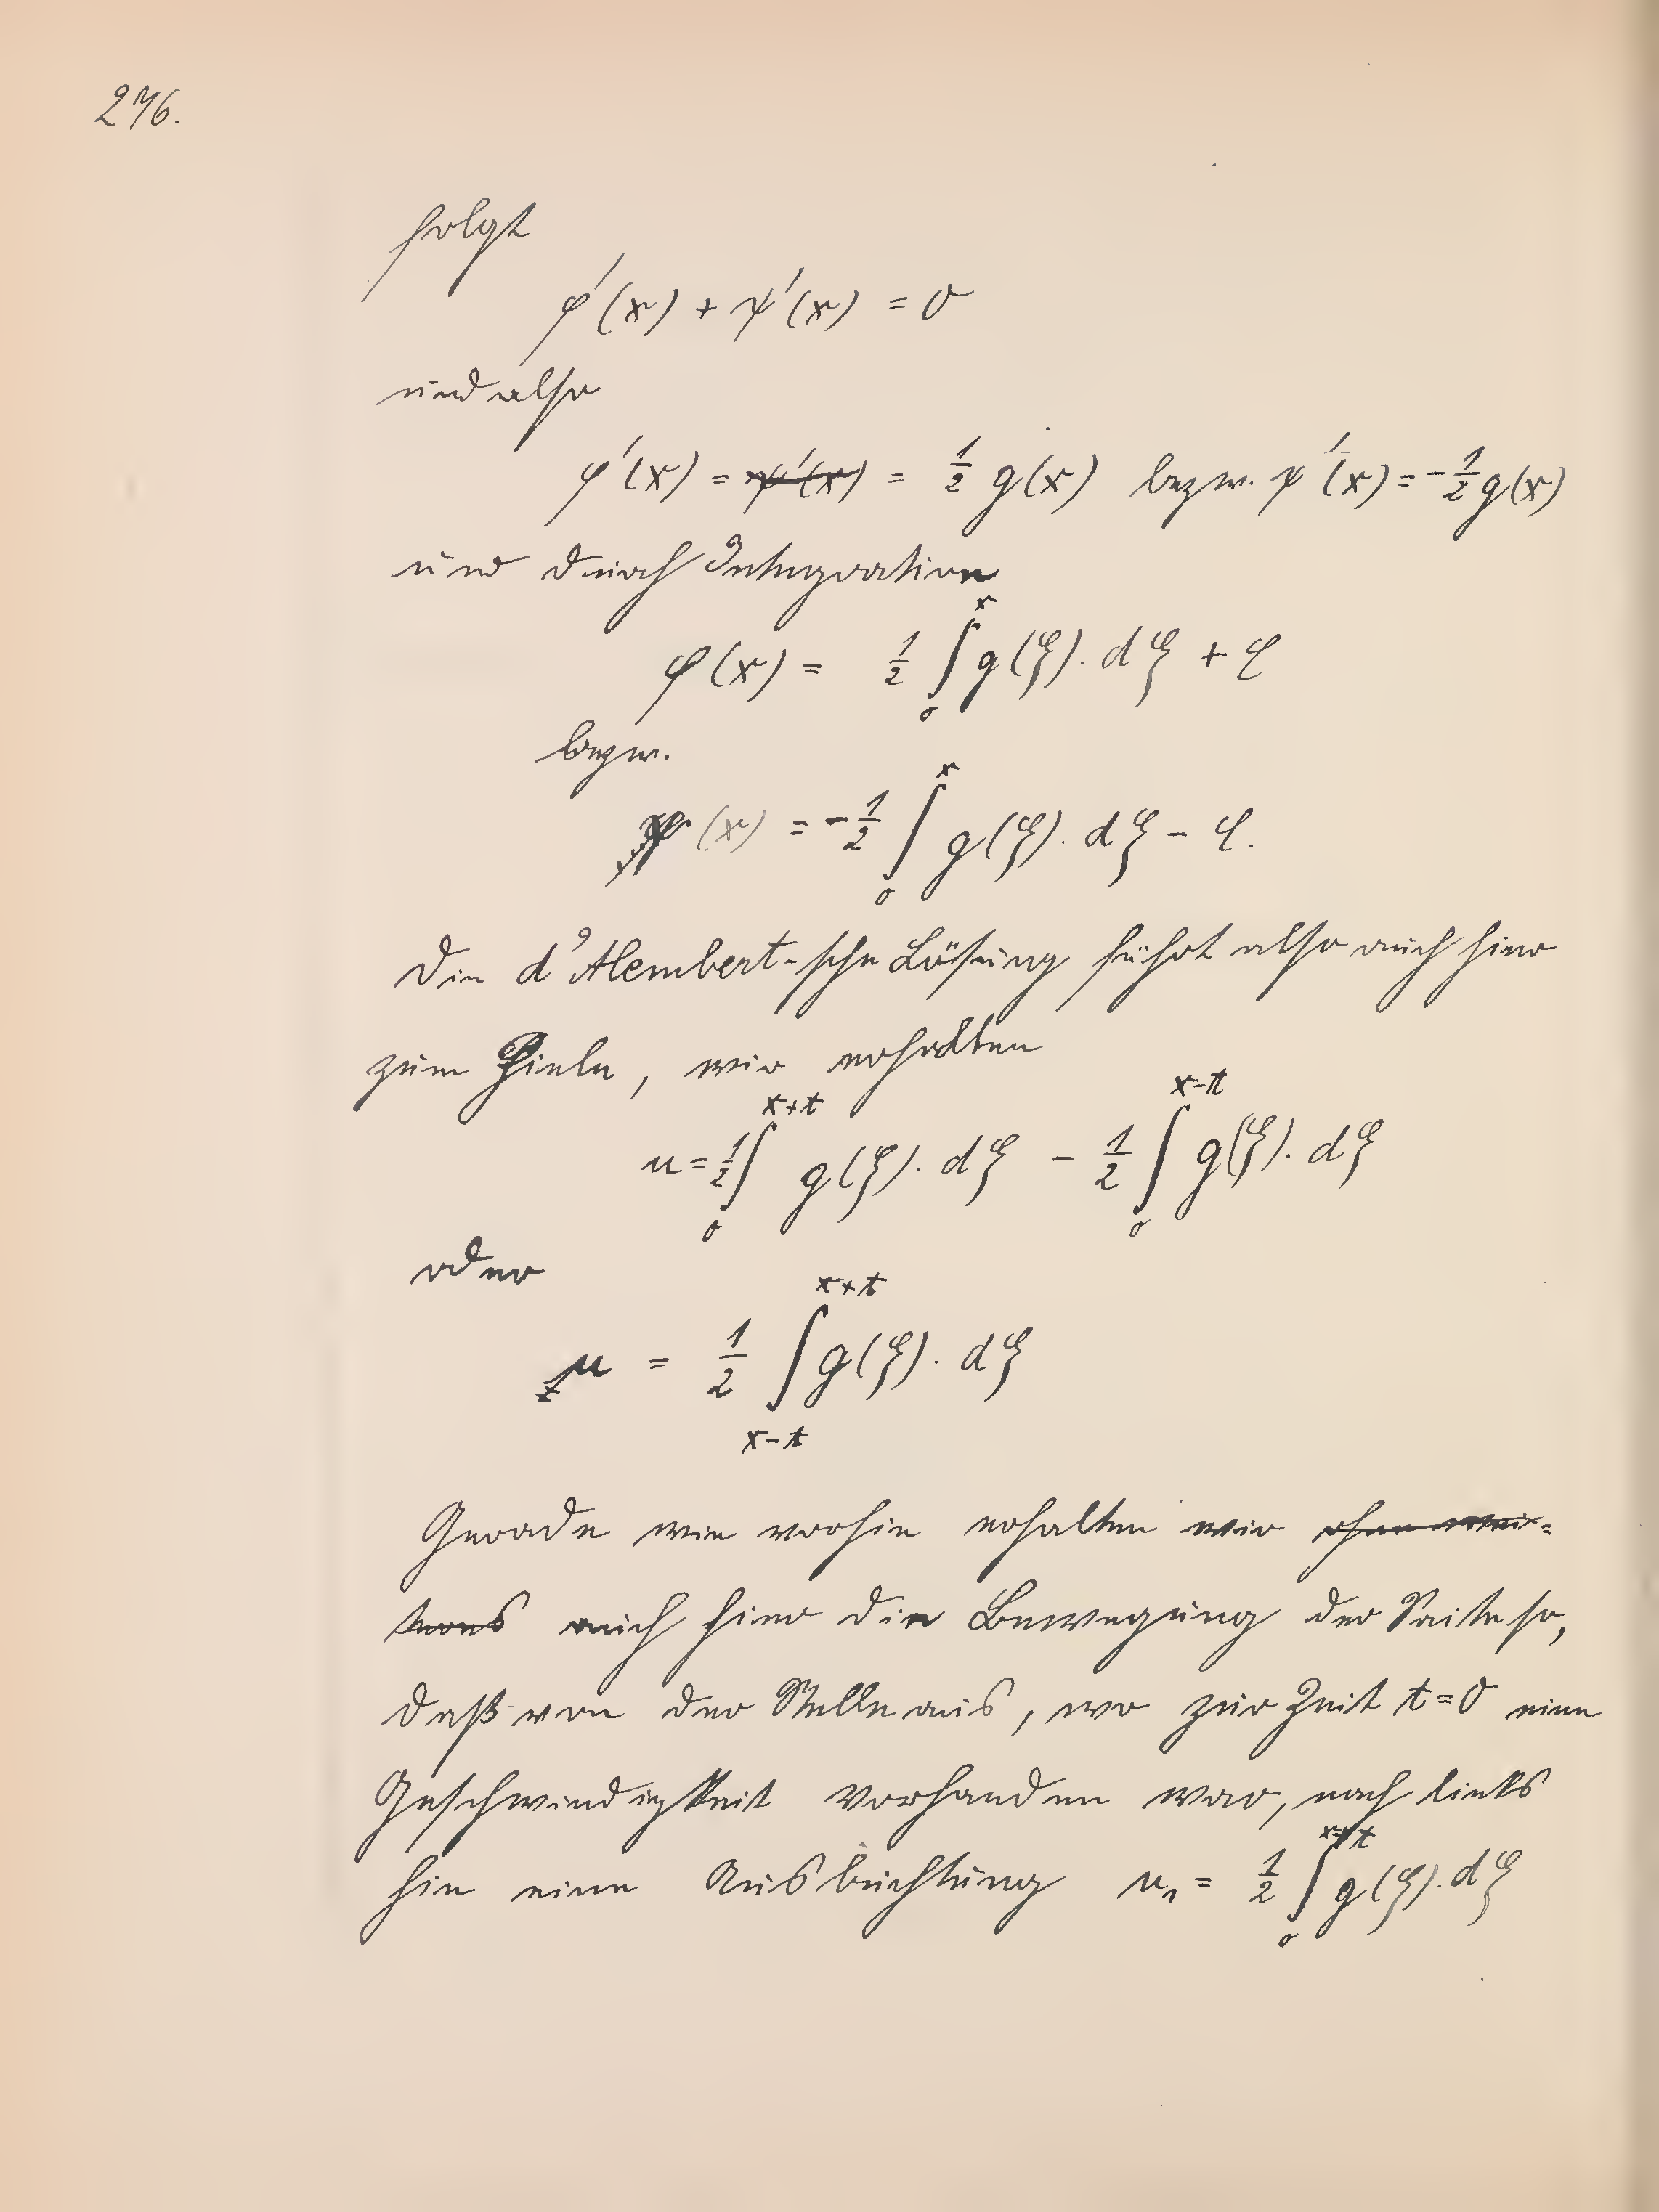 276.
folgt
φ'(x) + ψ'(x) = 0
und also
φ'(x) = ~~ψ'(x)~~ = 1/2 g(x) bezw. ψ'(x) = -1/2 g(x)
und durch Integration
φ(x) = 1/2 ∫₀ˣ g(ξ). dξ + C
bezw.
ψ(x) = -1/2 ∫₀ˣ g(ξ). dξ - C.
Die d'Alembert-sche Lösung führt also auch hier
zum Ziele, wir erhalten
u = 1/2 ∫₀ˣ⁺ᵗ g(ξ). dξ - 1/2 ∫₀ˣ⁻ᵗ g(ξ). dξ
oder
u = 1/2 ∫ₓ₋ₜˣ⁺ᵗ g(ξ). dξ
Gerade wie vorhin erhalten wir ~~ohne wei=~~
~~teres~~ auch hier die Bewegung der Saite so,
daß von der Stelle aus, wo zur Zeit t=0 eine
Geschwindigkeit vorhanden war, nach links
hin eine Ausbuchtung u₁ = 1/2 ∫₀ˣ⁺ᵗ g(ξ). dξ